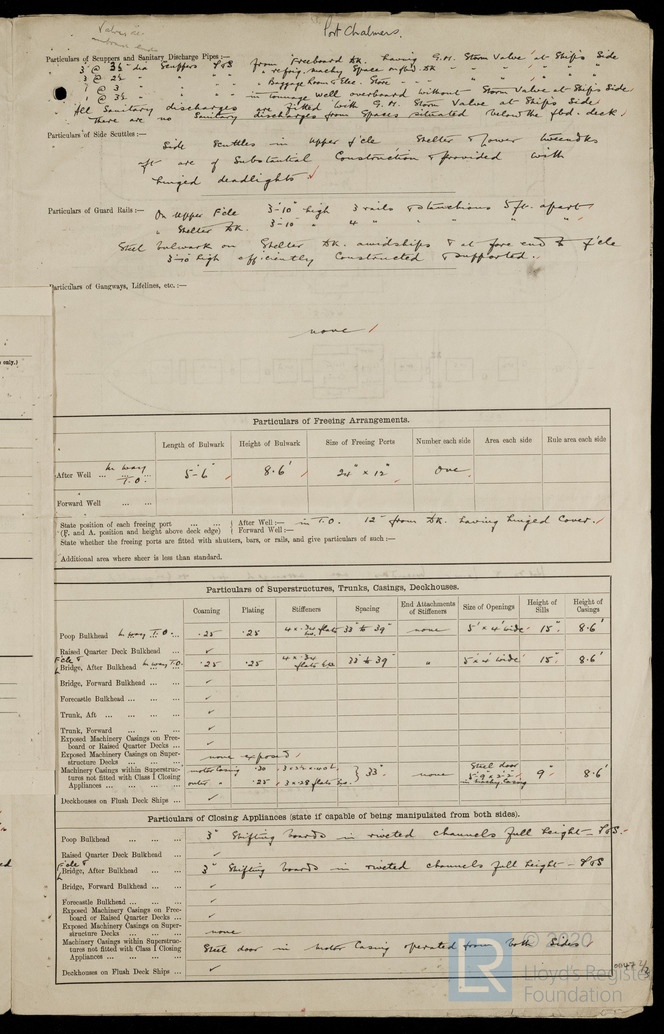 Port Chalmers.
Particulars of Scuppers and Sanitary Discharge Pipes :— from Freeboard Dk. having G.M. Storm Valve at Ships Side
3 @ 3½" dia Scuppers P&S " refrig. machy Space on fbd Dk " " " " "
3 @ 2½ " " " " " Baggage Room & Elec. Store " " " " "
1 @ 3 " " " " in tonnage well overboard without Storm Valve at Ships Side
1 @ 3½ " " "
All Sanitary discharges are fitted with G.M. Storm Valve at Ships Side
There are no Sanitary discharges from Spaces situated below the fbd. deck.
Particulars of Side Scuttles :—
Side Scuttles in upper f'cle Shelter & lower tweendks
aft are of Substantial Construction & provided with
hinged deadlights
Particulars of Guard Rails :— On Upper F'cle 3'-10" high 3 rails & stanchions 5 ft. apart
" Shelter Dk. 3'-10" " 4 " " " "
Steel bulwark on Shelter Dk. amidships & at fore end to f'cle
3'-10 high efficiently Constructed & supported.
Particulars of Gangways, Lifelines, etc. :—
none
only.)
Particulars of Freeing Arrangements.
Length of Bulwark Height of Bulwark Size of Freeing Ports Number each side Area each side Rule area each side
After Well ... In way T.O. 5'-6" 8.6' 24" x 12" One
Forward Well ... ...
State position of each freeing port ... ... After Well :— in T.O. 12" from Dk. having hinged Cover.
(F. and A. position and height above deck edge) Forward Well :—
State whether the freeing ports are fitted with shutters, bars, or rails, and give particulars of such :—
Additional area where sheer is less than standard.
Particulars of Superstructures, Trunks, Casings, Deckhouses.
Coaming Plating Stiffeners Spacing End Attachments of Stiffeners Size of Openings Height of Sills Height of Casings
Poop Bulkhead In way T.O. ... .25 .25 4 x .34 flats 33" to 39" none 5' x 4' wide 15" 8.6'
Raised Quarter Deck Bulkhead ... ✓
F'cle & Bridge, After Bulkhead In way T.O. .25 .25 4 x .34 flats 33" to 39" " 5' x 4' wide 15" 8.6'
Bridge, Forward Bulkhead ... ... ✓
Forecastle Bulkhead ... ... ... ✓
Trunk, Aft ... ... ... ... ✓
Trunk, Forward ... ... ... ✓
Exposed Machinery Casings on Freeboard or Raised Quarter Decks ... ✓
Exposed Machinery Casings on Superstructure Decks ... ... ... none exposed
Machinery Casings within Superstructures not fitted with Class I Closing Appliances ... ... ... motor casing .30 33" none Steel door in machy casing 9" 8.6'
outer " .25 3 x .28 flats
Deckhouses on Flush Deck Ships ... ✓
Particulars of Closing Appliances (state if capable of being manipulated from both sides).
Poop Bulkhead ... ... ... 3" Shifting boards in riveted channels full height — P&S.
Raised Quarter Deck Bulkhead ... ✓
F'cle & Bridge, After Bulkhead ... ... 3" Shifting boards in riveted channels full height — P&S
Bridge, Forward Bulkhead ... ... ✓
Forecastle Bulkhead ... ... ... ✓
Exposed Machinery Casings on Freeboard or Raised Quarter Decks ... ✓
Exposed Machinery Casings on Superstructure Decks ... ... ... none
Machinery Casings within Superstructures not fitted with Class I Closing Appliances ... ... ... Steel door in Motor Casing operated from both Sides
Deckhouses on Flush Deck Ships ... ✓
© 2020
LR
Lloyd's Register
Foundation